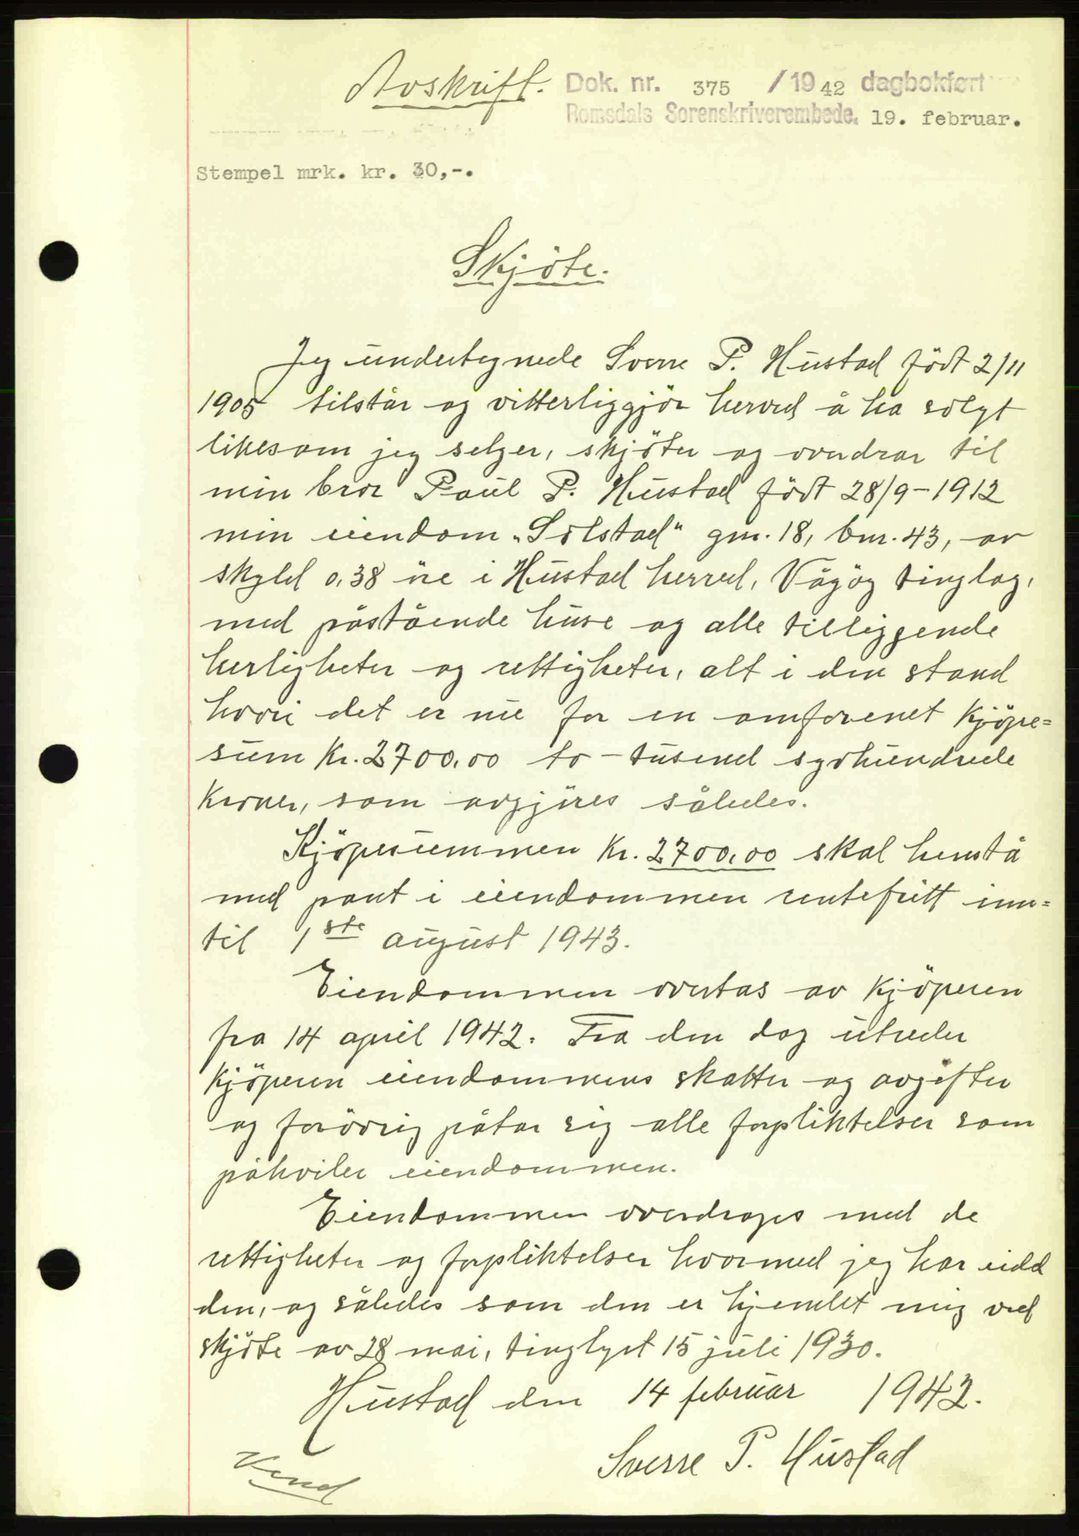 Avskrift. Dok. nr. 375 /1942 dagbokført
Romsdals Sorenskriverembede. 19. februar.
Stempel mrk. kr. 30,-.
Skjöte.
Jeg undertegnede Sverre P. Hustad född 2/11
1905 tilstår og vitterliggjör herved å ha solgt
likesom jeg selger, skjöter og overdrar til
min bror Paul P. Hustad född 28/9-1912
min eiendom „Solstad" gnr. 18, bnr. 43, av
skyld 0,38 öre i Hustad herred, Vågöy tinglag,
med påstående huse og alle tilliggende
herligheter og rettigheter, alt i den stand
hvori det er nu for en omforenet kjöpe=
sum kr. 2700,00 to-tusend syvhundrede
kroner, som avgjöres således.
Kjöpesummen kr. 2700,00 skal henstå
med pant i eiendommen rentefritt inn=
til 1ste august 1943.
Eiendommen overtas av kjöperen
fra 14 april 1942. Fra den dag utreder
kjöperen eiendommens skatter og avgifter
og forövrig påtar sig alle forpliktelser som
påhviler eiendommen.
Eiendommen overdrages med de
rettigheter og forpliktelser hvormed jeg har eidd
den, og således som den er hjemlet mig ved
skjöte av 28 mai, tinglyst 15 juli 1930.
Hustad den 14 februar 1942.
Sverre P. Hustad
Vend